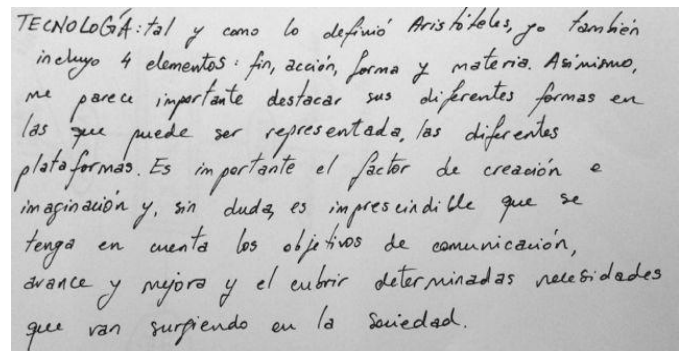 TECNOLOGÍA: tal y como lo definió Aristóteles, yo también
incluyo 4 elementos: fin, acción, forma y materia. Asimismo,
me parece importante destacar sus diferentes formas en
las que puede ser representada, las diferentes
plataformas. Es importante el factor de creación e
imaginación y, sin duda, es imprescindible que se
tenga en cuenta los objetivos de comunicación,
avance y mejora y el cubrir determinadas necesidades
que van surgiendo en la sociedad.